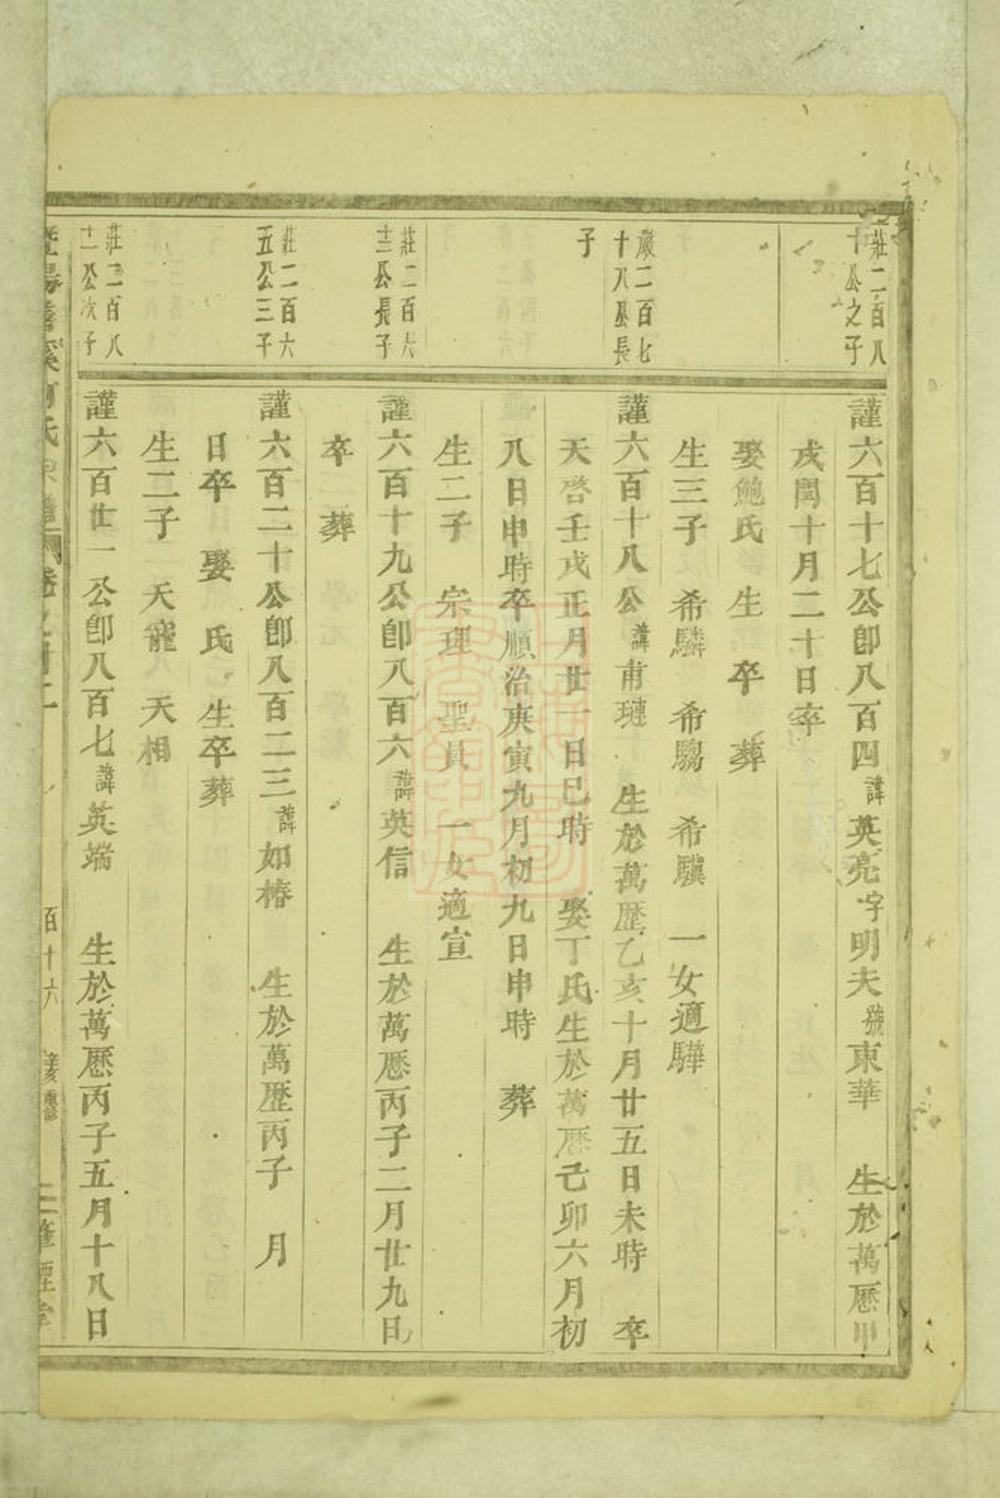 莊二百八
十公之子
謹六百十七公卽八百四諱英亮字明夫號東華　生於萬歷甲
戌閏十月二十日卒
娶鮑氏　生　卒　葬
生三子　希驎　希騶　希驥　一女適驊
嚴二百七
十八公長
子
謹六百十八公諱甫璉　生於萬歷乙亥十月廿五日未時　卒
天啓壬戌正月廿一日巳時　娶丁氏生於萬歷己卯六月初
八日申時卒順治庚寅九月初九日申時　葬
生二子　宗理　聖員　一女適宣
莊二百六
十三公長子
謹六百十九公卽八百六諱英信　生於萬歷丙子二月廿九日
卒　葬
莊二百六
五公三子
謹六百二十公卽八百二三諱如椿　生於萬歷丙子　月
日卒　娶　氏　生卒葬
生二子　天寵　天相
莊二百八
十一公次子
謹六百廿一公卽八百七諱英端　生於萬歷丙子五月十八日
百十六　辛亥重修